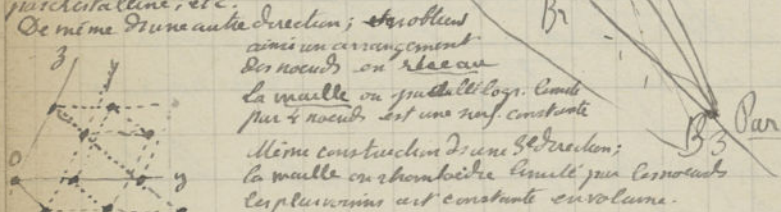 par cristalline, etc.
De même d'une autre direction; obtient
ainsi un arrangement
des noeuds en réseau
la maille ou parallélogr. limité
par 4 noeuds est une surf. constante
Même construction d'une 3e direction;
la maille ou rhomboèdre limité par les noeuds
les plus voisins est constante en volume.
z
O
y
Br
B3
Par